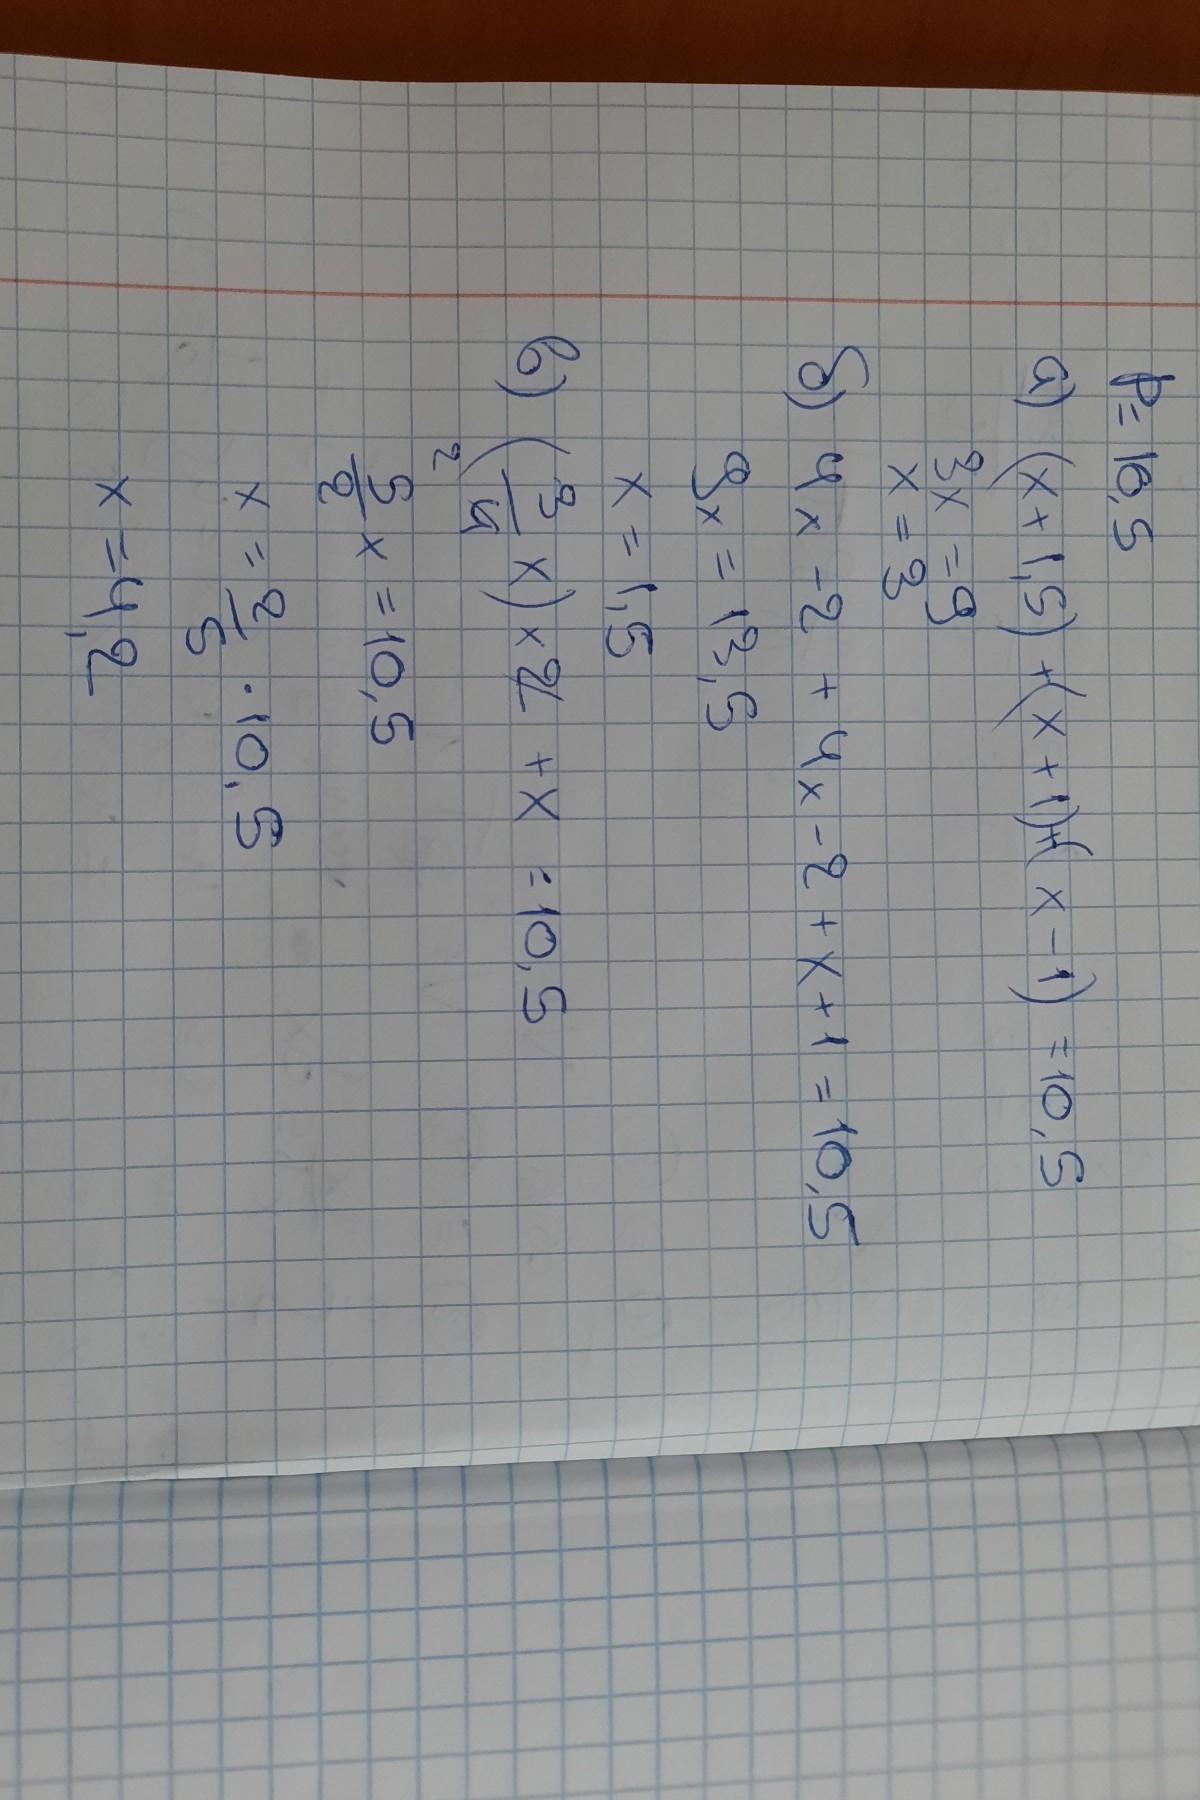 P = 10,5
а) (x + 1,5) + (x + 1) + (x - 1) = 10,5
3x = 9
x = 3
б) 4x - 2 + 4x - 2 + x + 1 = 10,5
9x = 13,5
x = 1,5
в) (3/4 x) x 2 + x = 10,5
2
5/2 x = 10,5
x = 2/5 · 10,5
x = 4,2